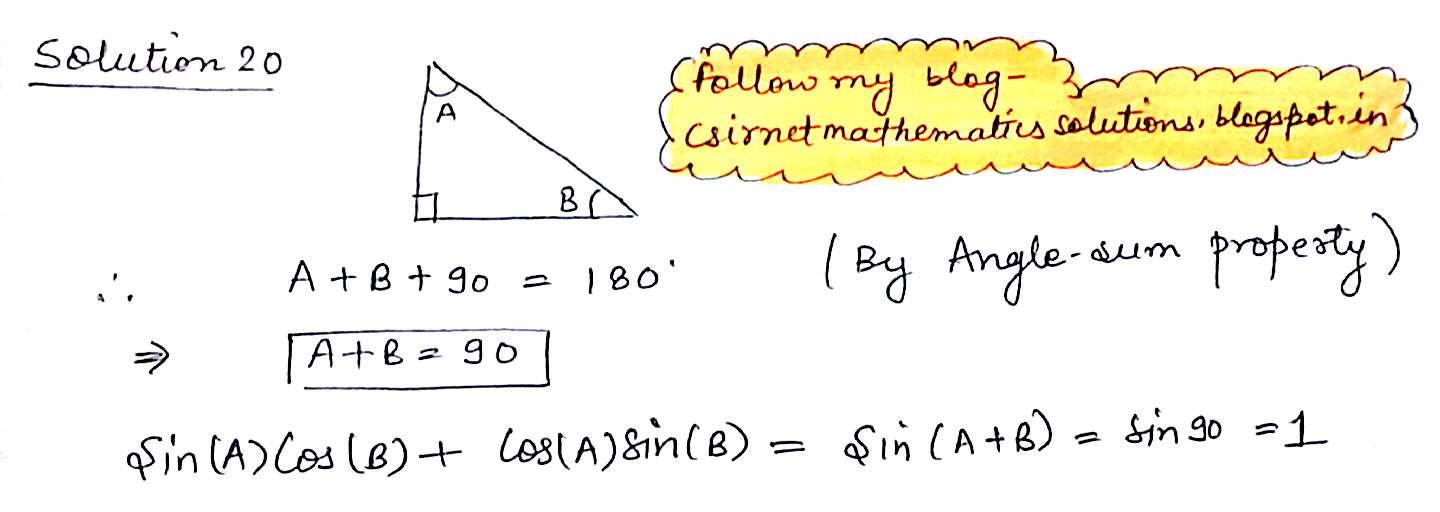 Solution 20
follow my blog-
csirnetmathematicssolutions.blogspot.in
A
B
∴ A + B + 90 = 180° (By Angle-sum property)
⇒ A+B = 90
Sin(A)Cos(B) + Cos(A)Sin(B) = Sin(A+B) = Sin 90 = 1